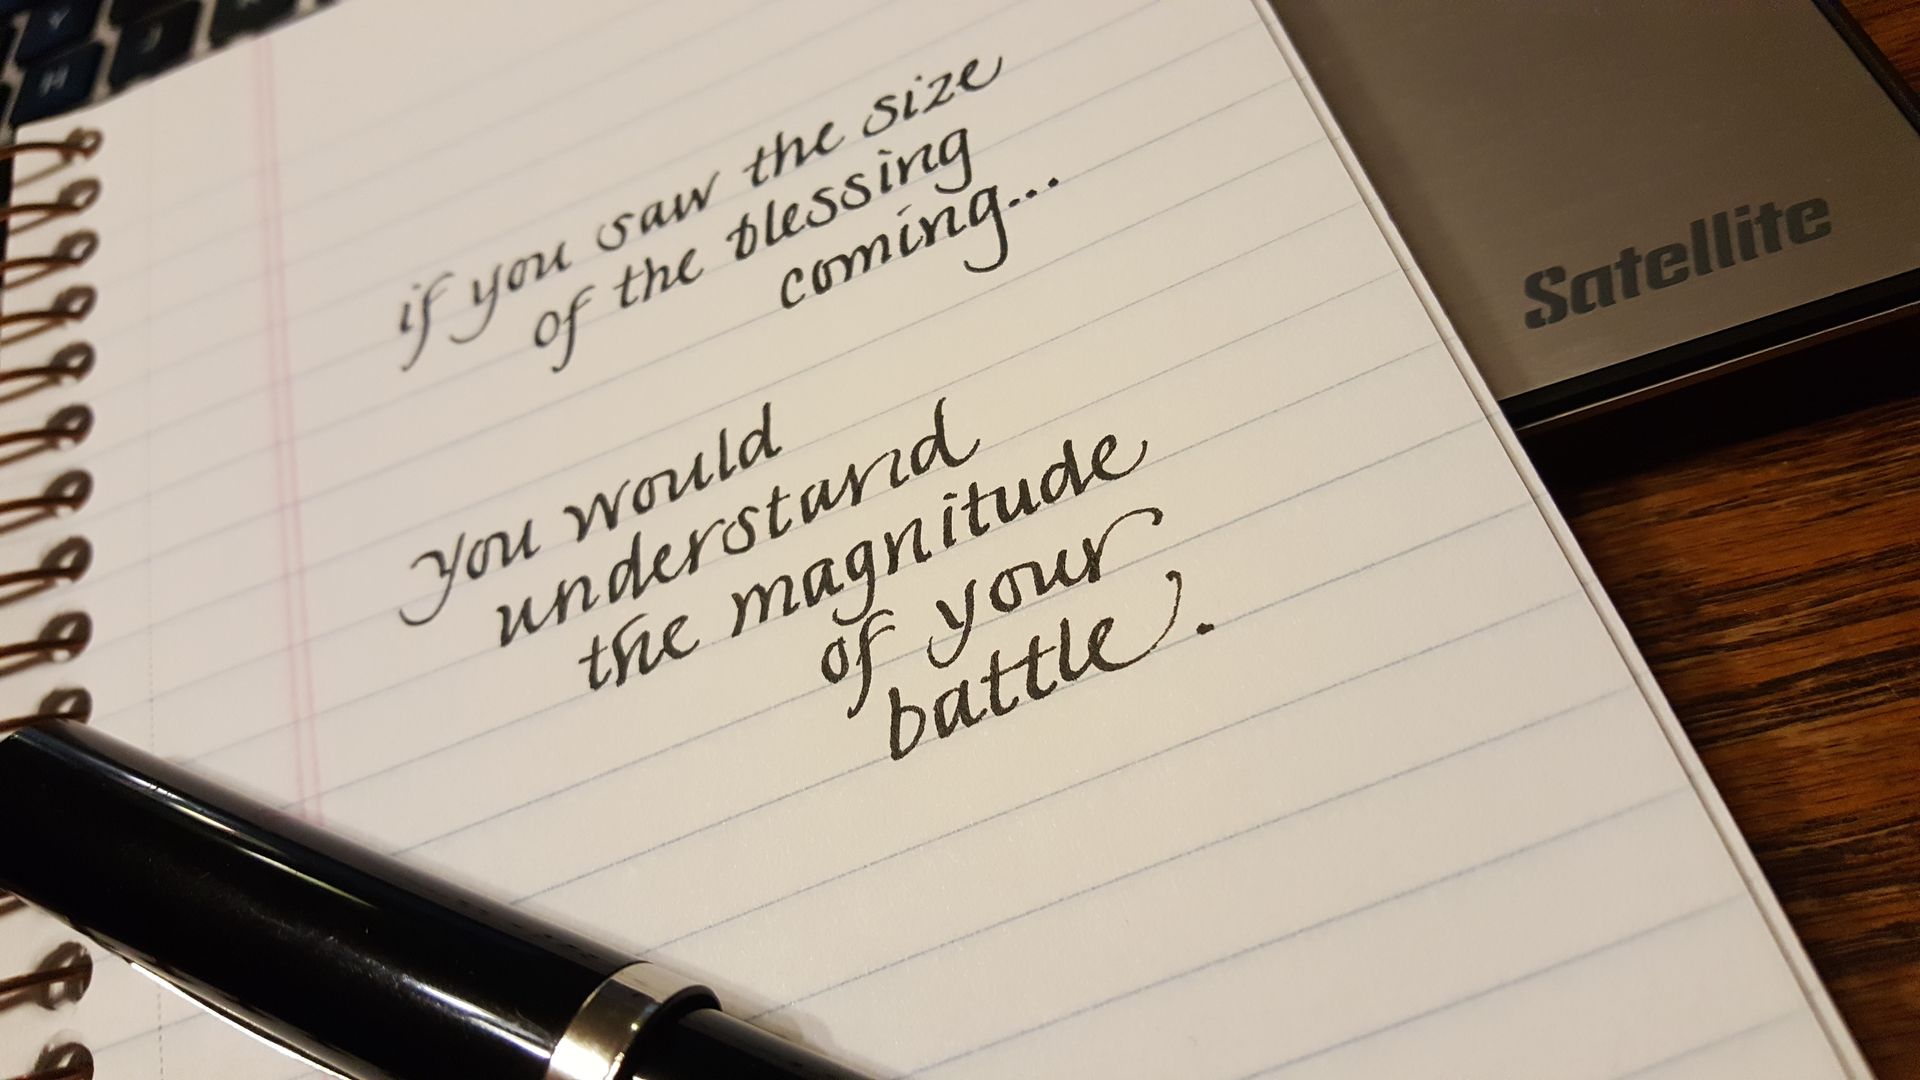 if you saw the size
of the blessing
coming...
you would
understand
the magnitude
of your
battle.
Satellite
Y
H
J